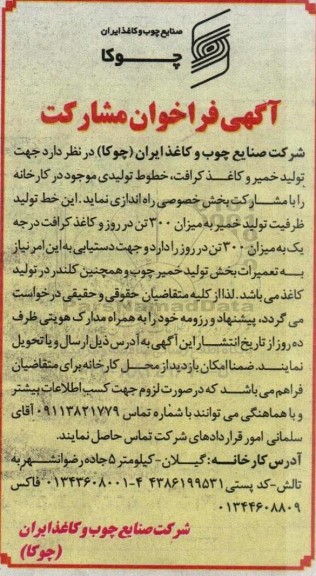 صنایع چوب و کاغذ ایران
چــوکا
آگهی فراخوان مشارکت
شرکت صنایع چوب و کاغذ ایران (چوکا) در نظر دارد جهت
تولید خمیر و کاغـــذ کرافت، خطوط تولیدی موجود در کارخانه
را با مشـارکت بخش خصوصی راه اندازی نماید. این خط تولید
ظرفیت تولید خمیر به میزان ۳۰۰ تن در روز و کاغذ کرافت درجه
یک به میزان ۳۰۰ تن در روز را دارد و جهت دستیابی به این امر نیاز
به تعمیرات بخش تولید خمیر چوب و همچنین کلندر در تولید
کاغذ می باشد. لذا از کلیه متقاضیان حقوقی و حقیقی درخواست
می گردد، پیشنهاد و رزومه خود را به همراه مدارک هویتی ظرف
ده روز از تاریخ انتشار این آگهی به آدرس ذیل ارسال و یا تحویل
نماینــد. ضمنا امکان بازدید از محــل کارخانه برای متقاضیان
فراهم می باشد که در صورت لزوم جهت کسب اطلاعات بیشتر
و یا هماهنگی می توانند با شماره تماس ۰۹۱۱۳۸۲۱۷۷۹ آقای
سلمانی امور قراردادهای شرکت تماس حاصل نمایند.
آدرس کارخانـه: گیــلان- کیلومتر ۵ جاده رضوانشهر به
تالش- کد پستی ۴۳۸۶۱۹۹۵۳۱ ۴-۰۱۳۴۳۶۰۸۰۰۱ فاکس
۰۱۳۴۴۶۰۸۸۰۹
شرکت صنایع چوب و کاغذ ایران
(چوکا)